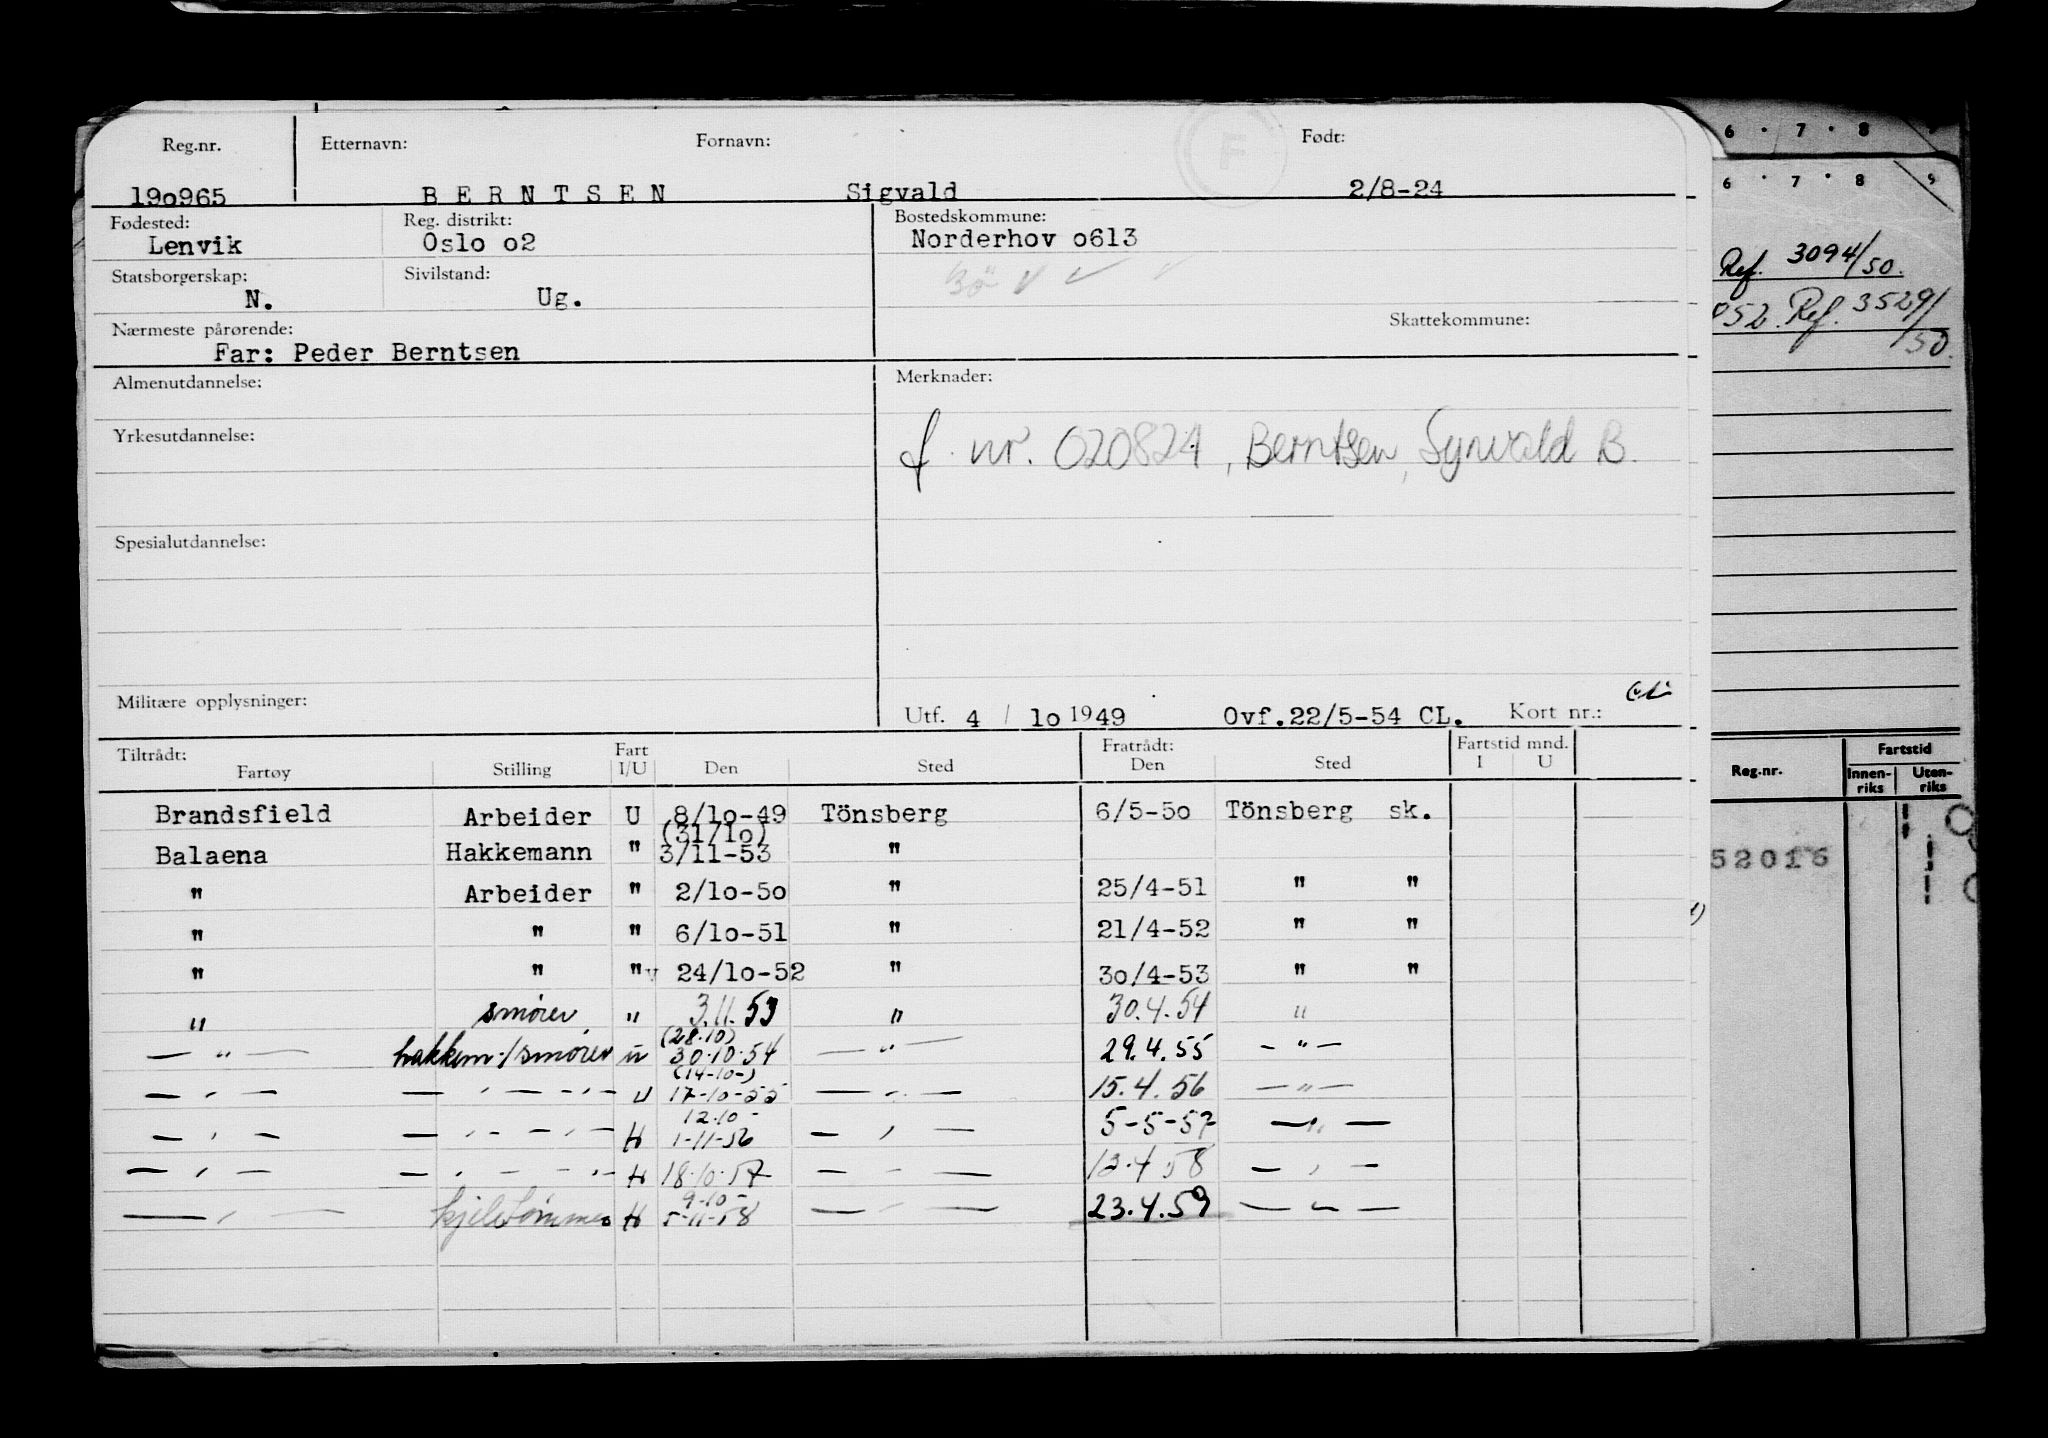 Reg.nr. Etternavn: Fornavn: Født:
19o965 B E R N T S E N Sigvald 2/8-24
F
Fødested: Reg. distrikt: Bostedskommune:
Lenvik Oslo o2 Norderhov o613
Statsborgerskap: Sivilstand:
N. Ug.
Nærmeste pårørende: Skattekommune:
Far: Peder Berntsen
Almenutdannelse: Merknader:
f. nr. 020824, Berntsen, Synvald B.
Yrkesutdannelse:
Spesialutdannelse:
Militære opplysninger: Utf. 4 / 1o 1949 Ovf.22/5-54 CL. Kort nr.:
Tiltrådt: Fart Fratrådt: Fartstid mnd.
Fartøy Stilling I/U Den Sted Den Sted I U
Brandsfield Arbeider U 8/1o-49 Tönsberg 6/5-5o Tönsberg sk.
(31/1o)
Balaena Hakkemann " 3/11-53 "
" Arbeider " 2/1o-5o " 25/4-51 " "
" " " 6/1o-51 " 21/4-52 " "
" " " 24/1o-52 " 30/4-53 " "
" smører " 3.11.53 " 30.4.54 "
(28.10)
— " — hakkem./smører u 30.10.54 — " — 29.4.55 — " —
(14-10-)
— " — — " — — " — U 17-10-55 — " — 15.4.56 — " —
12.10 -
— " — — " — — " — H 1-11-56 — " — 5-5-57 — " —
— " — — " — — " — H 18.10.57 — " — 12.4.58 — " —
9-10-
— " — kjeletømmer H 5-11-58 — " — 23.4.59 — " —
6 . 7 . 8
6 . 7 . 8 9
Ref. 3094/50.
52. Ref. 3529/
50.
Reg.nr. Fartstid
Innen-riks Uten-riks
52016